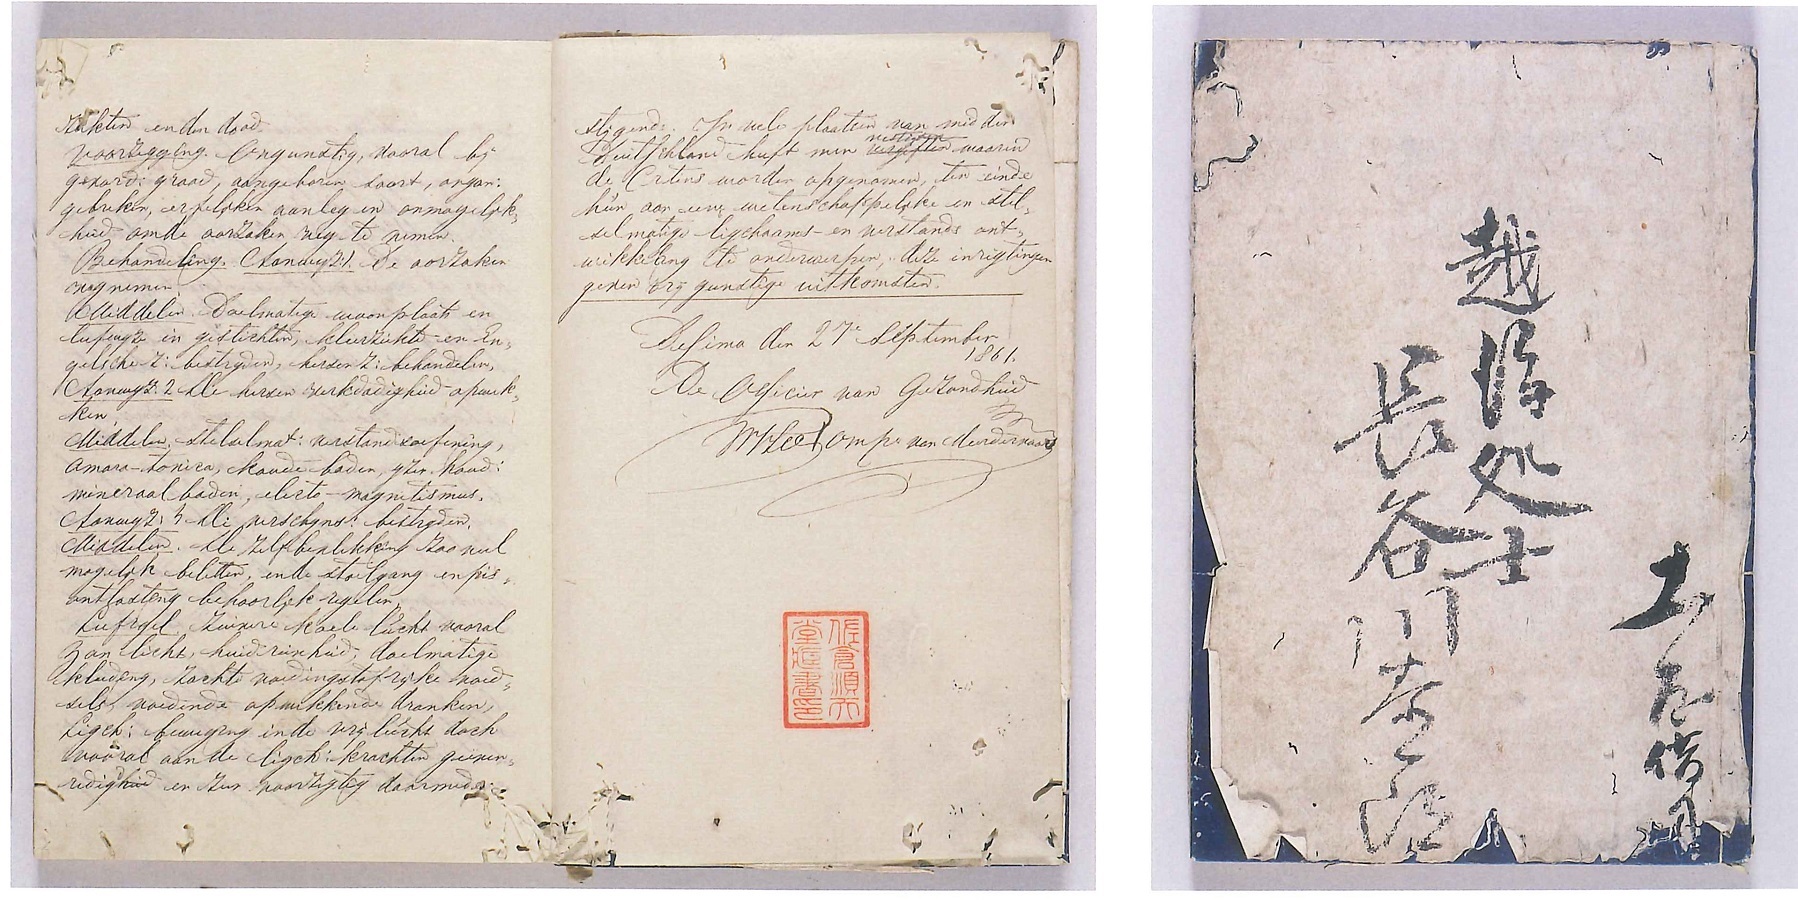 ziekten en den dood.
voorzegging. Ongunstig, vooral bij
gevord: graad, aangeboren soort, organ:
gebreken, erfelijken aanleg en onmogelijk-
heid om de oorzaken weg te nemen.
Behandeling. Aanwyz: 1. De oorzaken
wegnemen
Middelen. Doelmatige woonplaats en
in gestichten, klierziekte en En-
gelsche z: bestryden, hersenz: behandelen,
Aanwyz: 2 De hersen werkdadigheid opwek-
ken
Middelen. stelselmat: verstandsoefening,
amara-tonica, koude baden, yzer houd:
mineraal baden, electo-magnetismus.
Aanwyz: 3 De verschyns: bestryden.
Middelen. De zelfbevlekking zoo veel
mogelijk beletten, en de stoelgang en pis-
ontlasting behoorlijk regelen.
Leefregel zuivere koele lucht vooral
zon licht, huid reinheid, doelmatige
kleding, zachte voedingstofrijke voed-
sels, voedende opwekkende dranken,
Ligch: beweging in de vrij lucht doch
vooral aan de ligch: krachten geëven-
redigheid en zeer voorzigtig daarmede
stijgende. In vele plaatsen van midden
Duitschland heeft men gestigten waarin
de Cretens worden opgenomen, ten einde
hun aan eene wetenschappelijke en stel-
selmatige ligchaams- en verstands ont-
wikkeling te onderwerpen, deze inrigtingen
geven vrij gunstige uitkomsten.
Desima den 27e September
1861.
De Officier van Gezondheid
Pompe van Meerdervoort
佐倉順天
堂
越後処士
長谷川